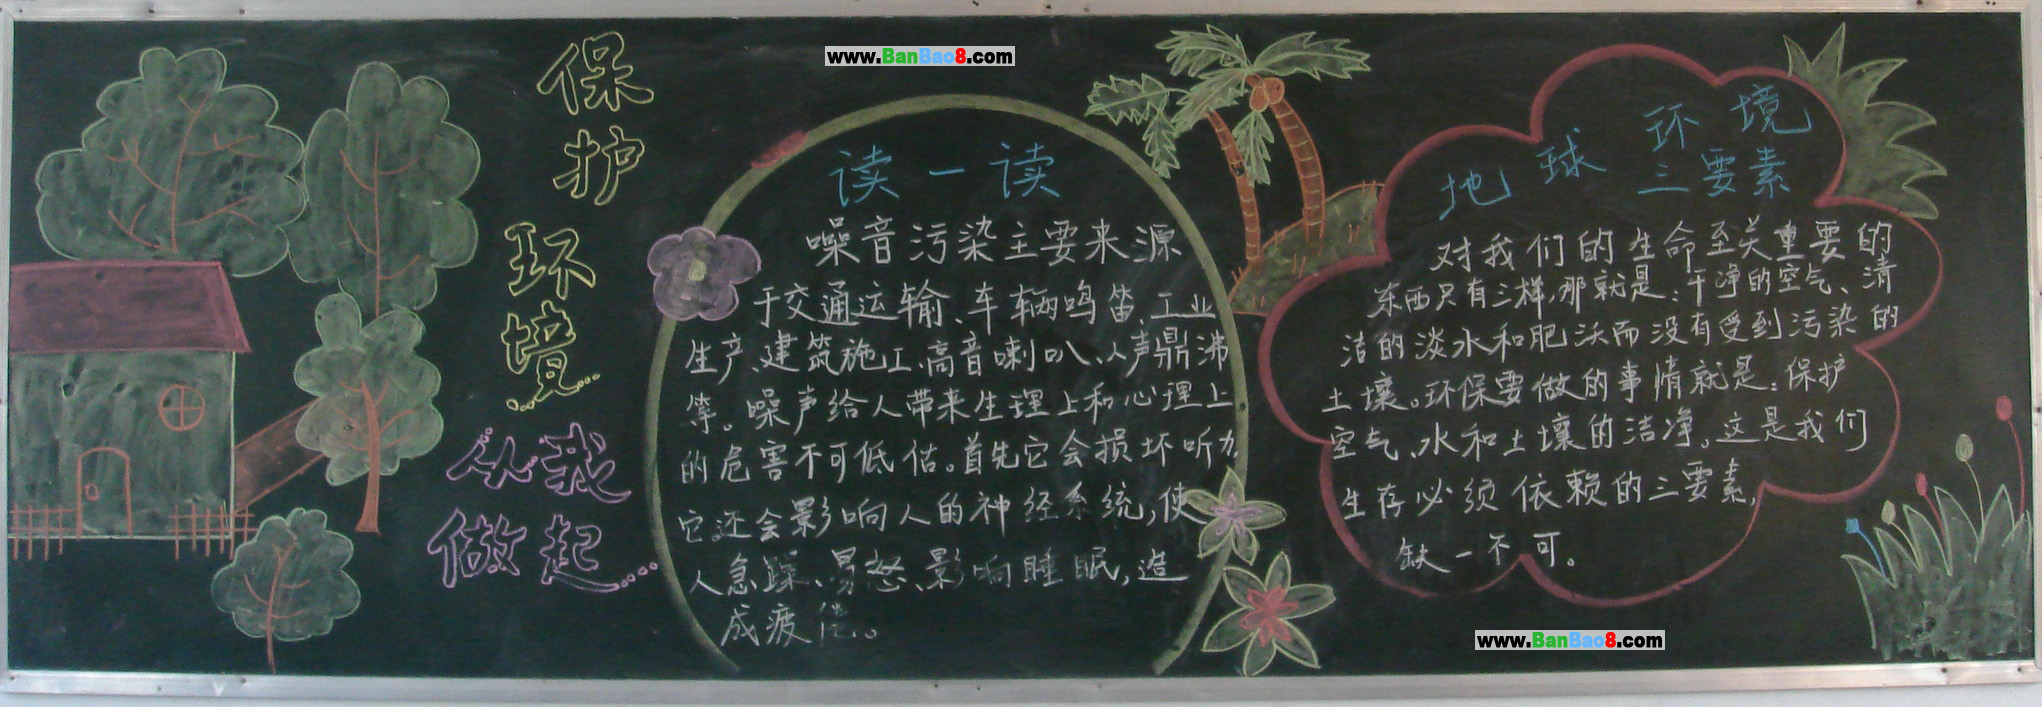 www.BanBao8.com
保护
环境……
从我
做起……
读一读
噪音污染主要来源
于交通运输、车辆鸣笛、工业
生产、建筑施工、高音喇叭、人声鼎沸
等。噪声给人带来生理上和心理上
的危害不可低估。首先它会损坏听力,
它还会影响人的神经系统,使
人急躁、易怒、影响睡眠,造
成疲倦。
地球环境
三要素
对我们的生命至关重要的
东西只有三样,那就是:干净的空气、清
洁的淡水和肥沃而没有受到污染的
土壤。环保要做的事情就是:保护
空气、水和土壤的洁净。这是我们
生存必须依赖的三要素,
缺一不可。
www.BanBao8.com